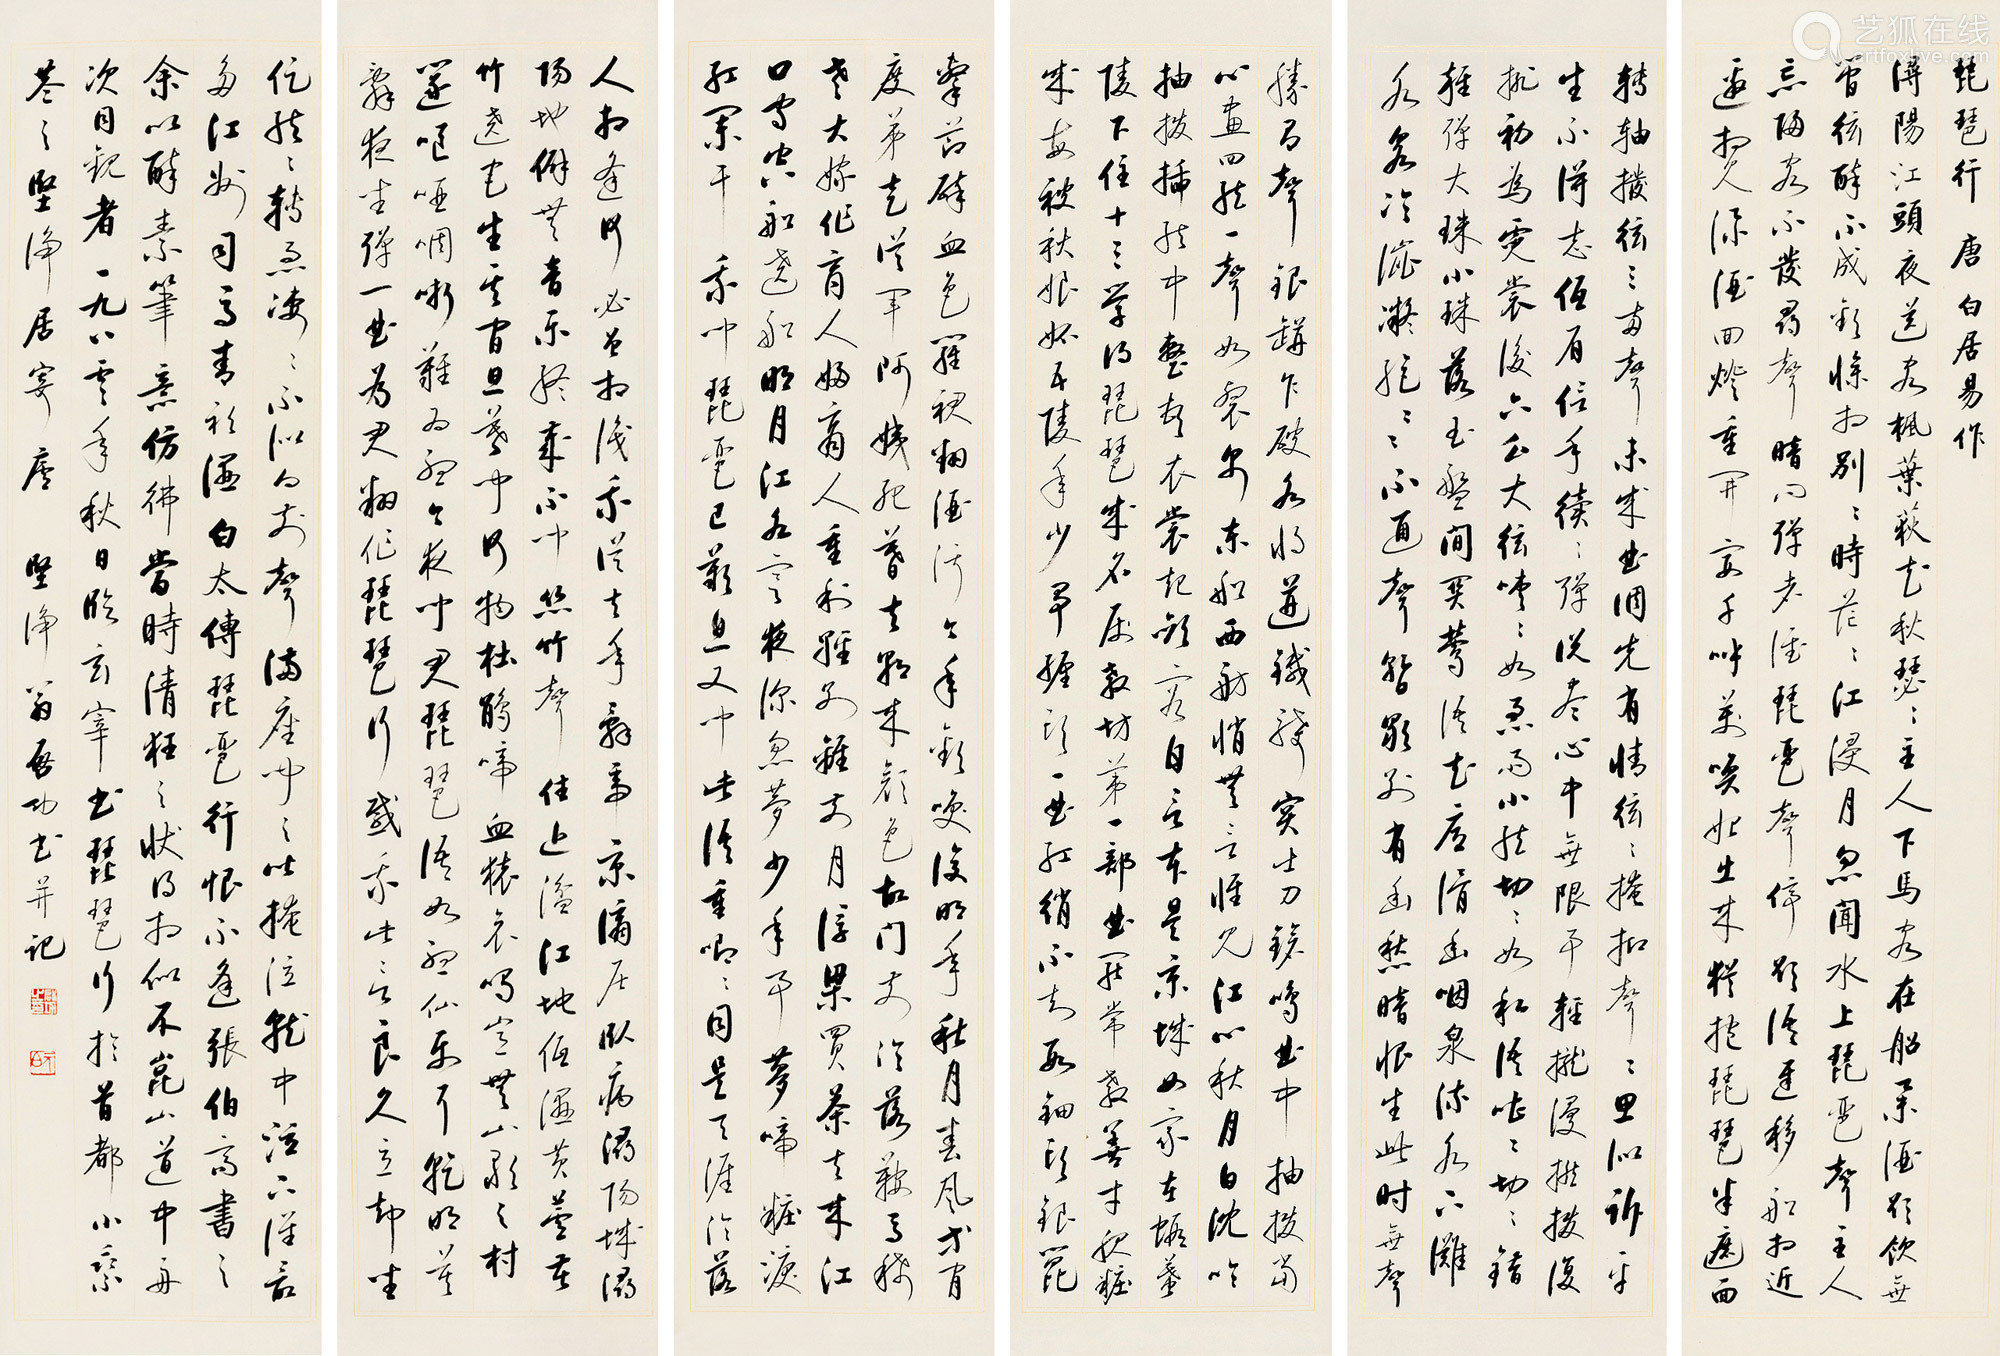 琵琶行 唐 白居易作
潯陽江頭夜送客楓葉荻花秋瑟〻主人下馬客在船舉酒欲飲無
管弦醉不成歡慘相別〻時茫〻江浸月忽聞水上琵琶聲主人
忘歸客不發尋聲暗問彈者誰琵琶聲停欲語遲移船相近
邀相見添酒回燈重開宴千呼萬喚始出來猶抱琵琶半遮面
轉軸撥弦三兩聲未成曲調先有情弦〻掩抑聲〻思似訴平
生不得志低眉信手續〻彈說盡心中無限事輕攏慢撚撥復
挑初為霓裳後六幺大弦嘈〻如急雨小弦切〻如私語嘈〻切〻錯
雜彈大珠小珠落玉盤間關鶯語花底滑幽咽泉流水下灘
水泉冷澀凝絕〻不通聲暫歇別有幽愁暗恨生此時無聲
勝有聲銀瓶乍破水漿迸鐵騎突出刀鎗鳴曲中抽撥當
心畫四弦一聲如裂帛東船西舫悄無言惟見江心秋月白沈吟
抽撥插弦中整頓衣裳起斂容自言本是京城女家在蝦蟇
陵下住十三學得琵琶成名屬教坊第一部曲罷常教善才伏粧
成每被秋娘妬五陵年少爭纏頭一曲紅綃不知數鈿頭銀篦
擊節碎血色羅裙翻酒污今年歡笑復明年秋月春風等閒
度弟走從軍阿姨死暮去朝來顏色故門前冷落鞍馬稀
老大嫁作商人婦商人重利輕別離前月浮梁買茶去來江
口守空船遶船明月江水寒夜深忽夢少年事夢啼粧淚
紅闌干我聞琵琶已歎息又聞此語重唧〻同是天涯淪落
人相逢何必曾相識我從去年辭帝京謫居臥病潯陽城潯
陽地僻無音樂終歲不聞絲竹聲住近湓江地低濕黃蘆苦
竹遶宅生其間旦暮聞何物杜鵑啼血猿哀鳴豈無山歌與村
篴嘔啞啁哳難為聽今夜聞君琵琶語如聽仙樂耳暫明莫
辭夜坐彈一曲為君翻作琵琶行感我此言良久立却坐
促弦〻轉急淒〻不似向前聲滿座聞之皆掩泣就中泣下誰最
多江州司馬青衫濕白太傅琵琶行恨不逢張伯高書之
余以醉素筆意仿彿當時清狂之狀得相似不崑山道中舟
次目觀者一九八零年秋日臨玄宰書琵琶行於首都小乘
巷之堅淨居寄廬 堅淨翁啟功書并記
艺狐在线
artfoxlive.com